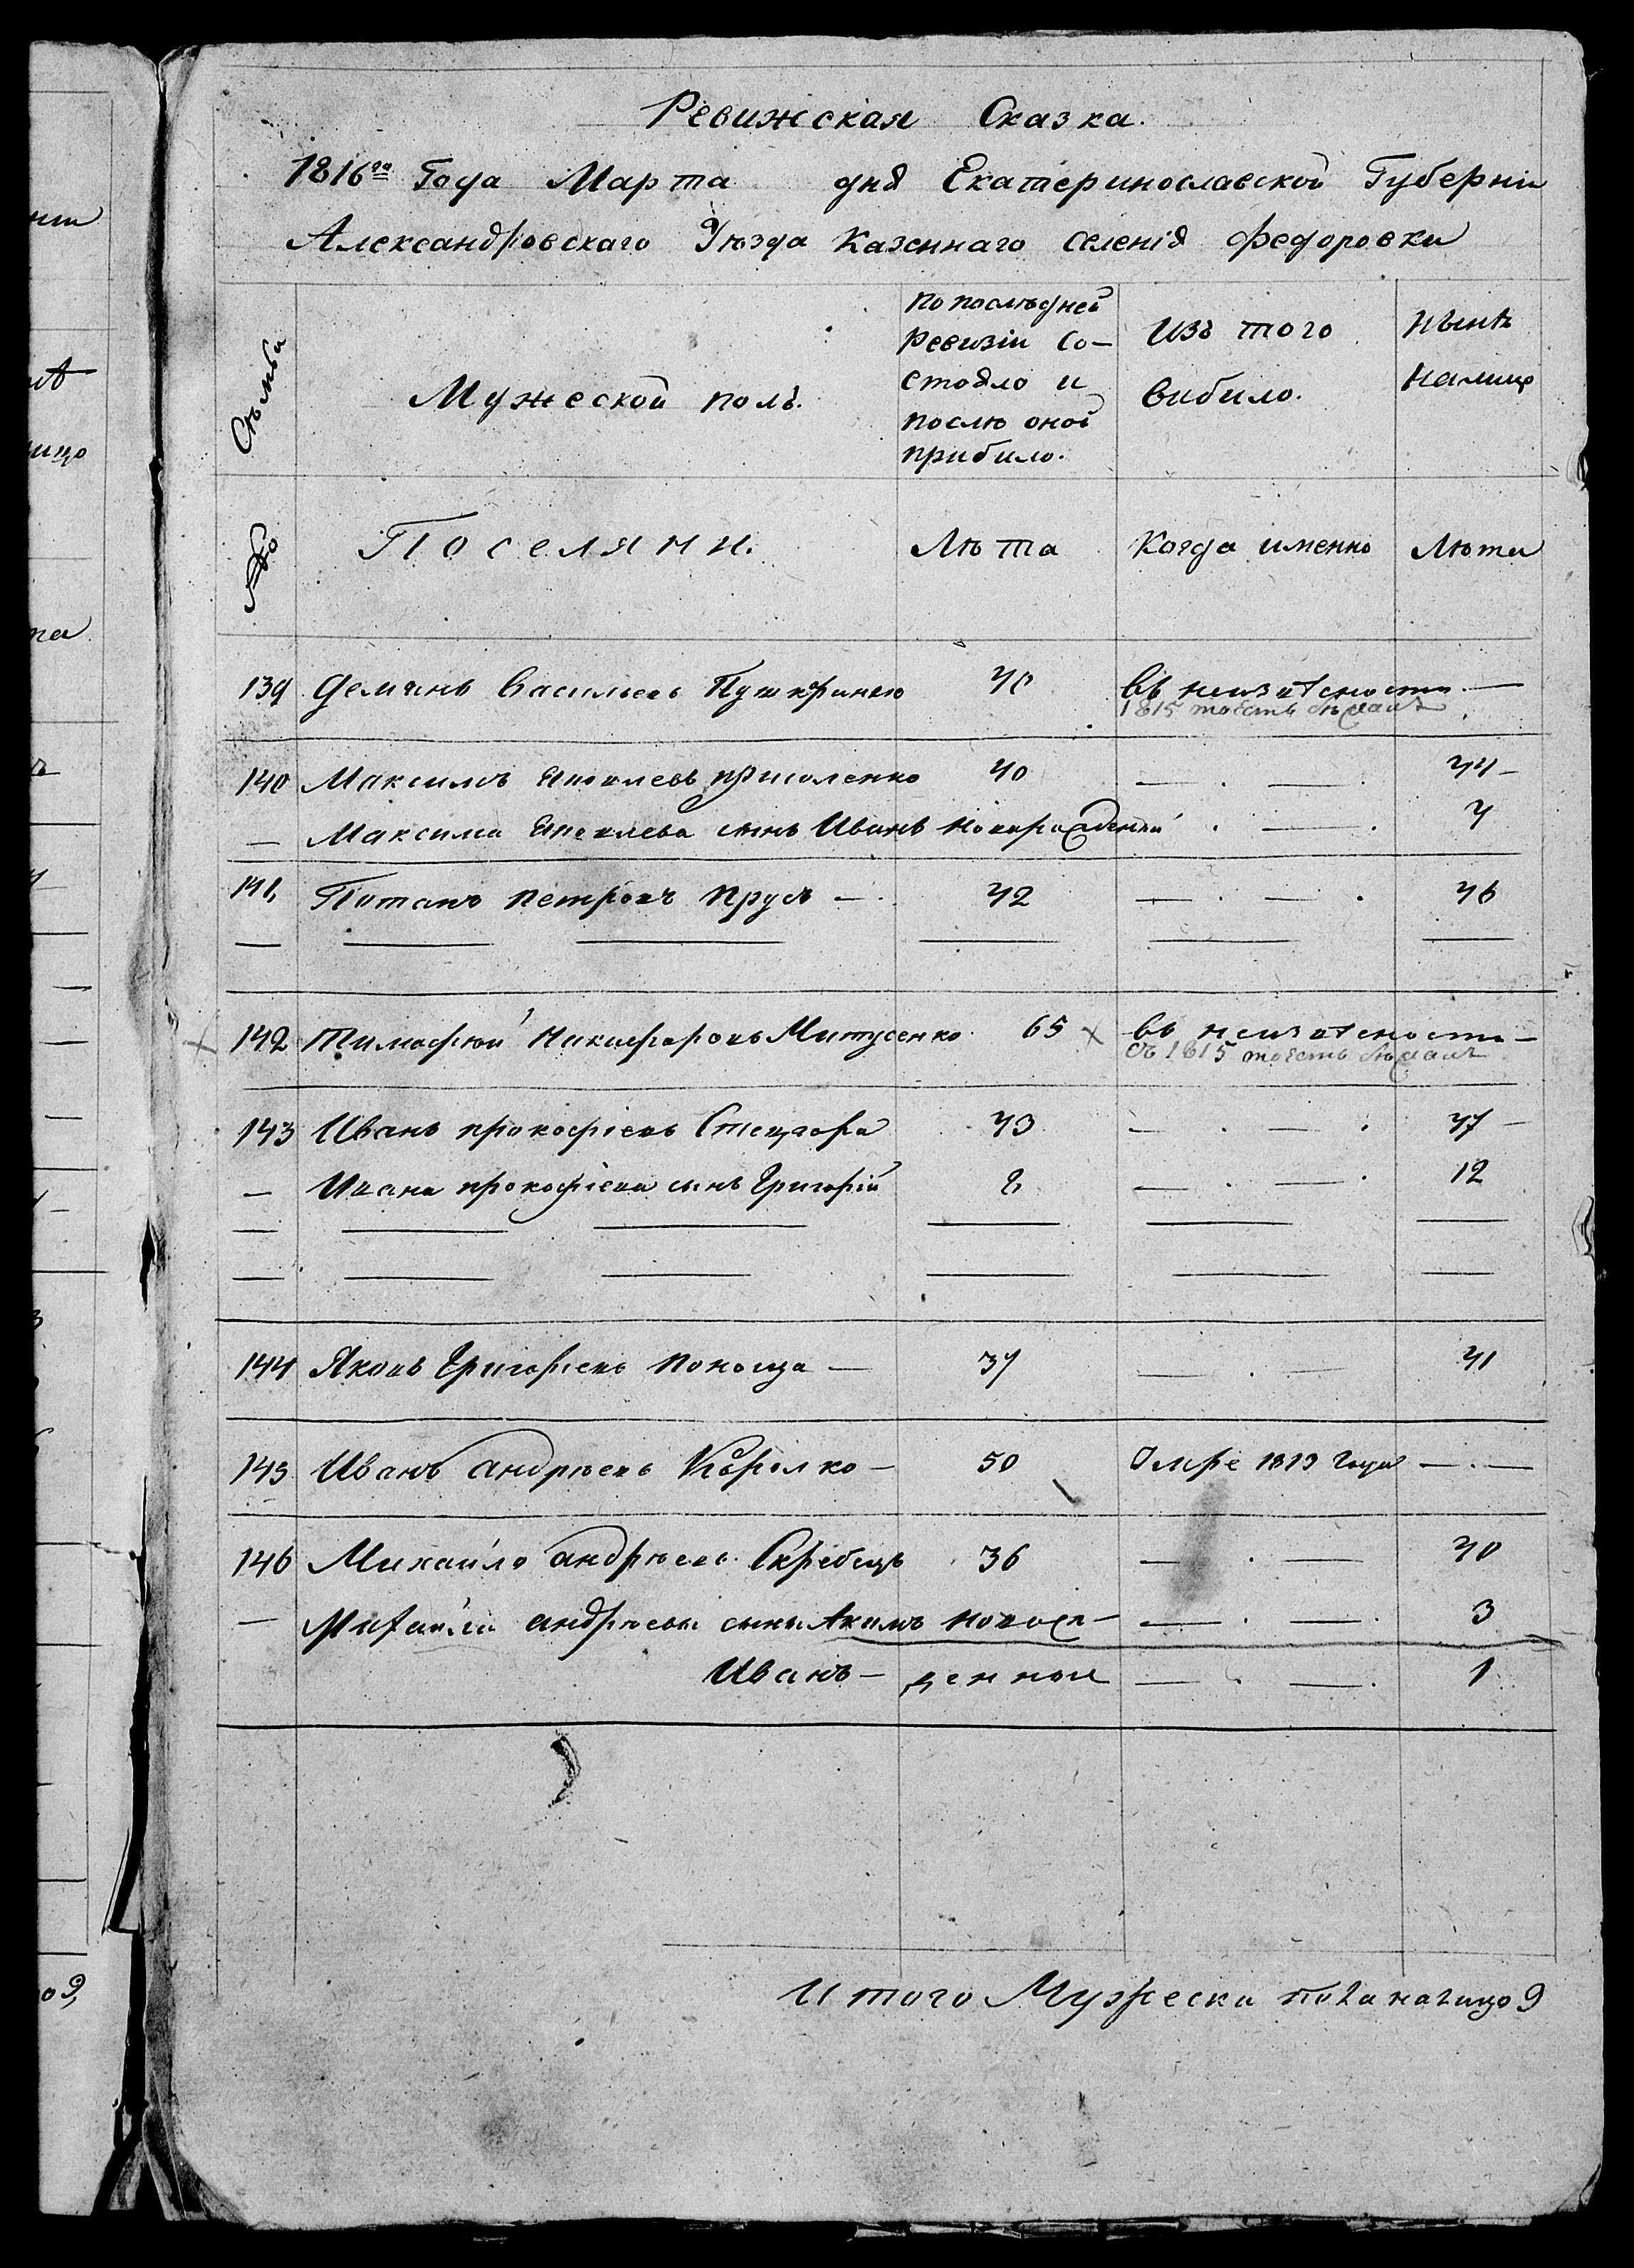 Ревижская Сказка.
1816го Года Марта дня Екатеринославской Губерніи
Александровскаго Уюзда Казеннаго селенія Федоровки
Мужеской полъ.
по послъдней
Ревизіи со-
стояло и
послю оной
прибило.
Изъ того
вибило.
Нынѣ
налицо
Поселяни.
Люта
Когда именно
Люта
139 Демянъ Васильевъ 40 въ неизвѣсности —
1815
140 Максимъ 40 — . — . 44 —
— Максима сынъ Иванъ новорожденній . — . 4
141, Потапъ Петровъ Прусъ — . 42 — . — . 46
142 Тимофюй Никифоровъ Митусенко 65 въ неизвѣсности —
съ 1815
143 Иванъ прокофіевъ 43 — . — . 47 —
— Ивана прокофіева сынъ Григорій 8 — . — . 12
144 Яковъ Григорьевъ — 37 — . — 41
145 Иванъ андрюевъ — 50 Умре 1813 Года — . —
146 Михайло андрюевъ Скребецъ 36 — . — 40
— Михайла андрюева сыны Акимъ новорож — . — . 3
Иванъ — денние — . — . 1
Итого Мужеска пола налицо 9